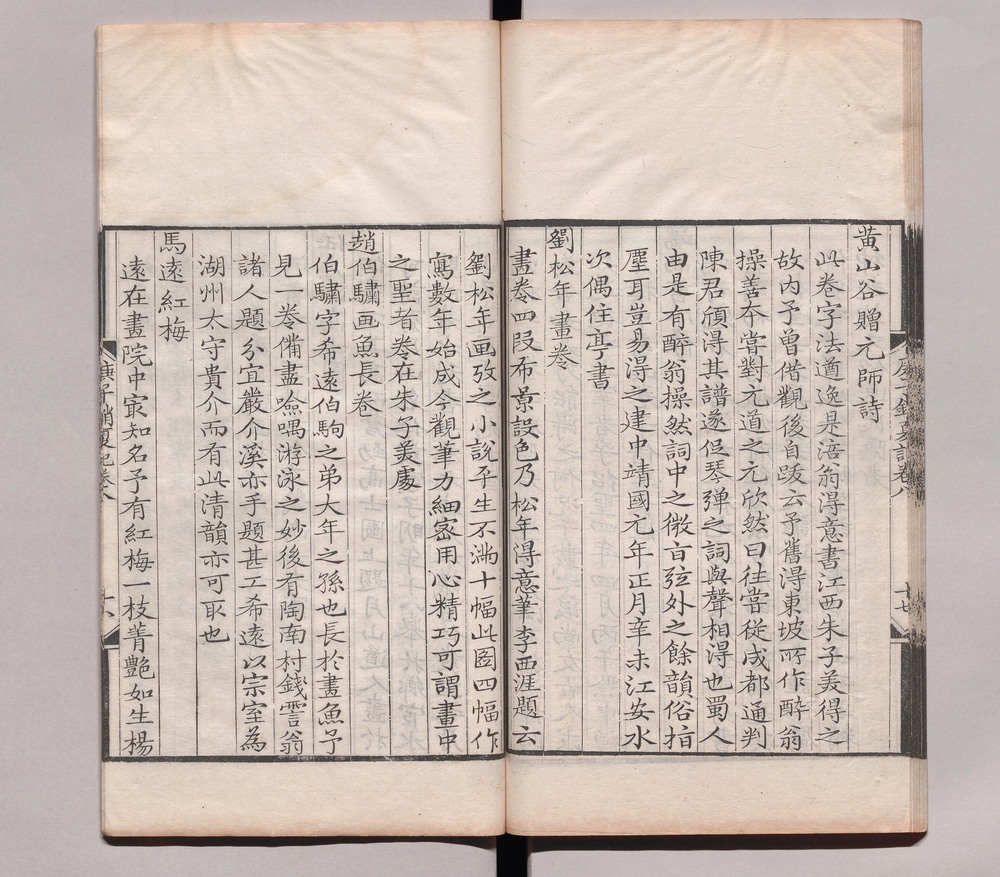 黃山谷贈元師詩
此卷字法遒逸是涪翁得意書江西朱子美得之
故內予曾借觀後自跋云予舊得東坡所作醉翁
操善本嘗對元道之元欣然曰往嘗從成都通判
陳君頎得其譜遂促琴弹之詞與聲相得也蜀人
由是有醉翁操然詞中之微旨弦外之餘韻俗指
塵耳豈易得之建中靖國元年正月辛未江安水
次偶住亭書
劉松年畫卷
畫卷四段布景設色乃松年得意筆李西涯題云
劉松年画攷之小說平生不滿十幅此图四幅作
寫數年始成今觀筆力細密用心精巧可謂畫中
之聖者卷在朱子美處
趙伯驌画魚長卷
伯驌字希遠伯駒之弟大年之孫也長於畫魚予
見一卷備盡噞喁游泳之妙後有陶南村錢雲翁
諸人題分宜嚴介溪亦手題甚工希遠以宗室為
湖州太守貴介而有此清韻亦可取也
馬遠紅梅
遠在畫院中最知名予有紅梅一枝菁艷如生楊
庚子銷夏記卷八